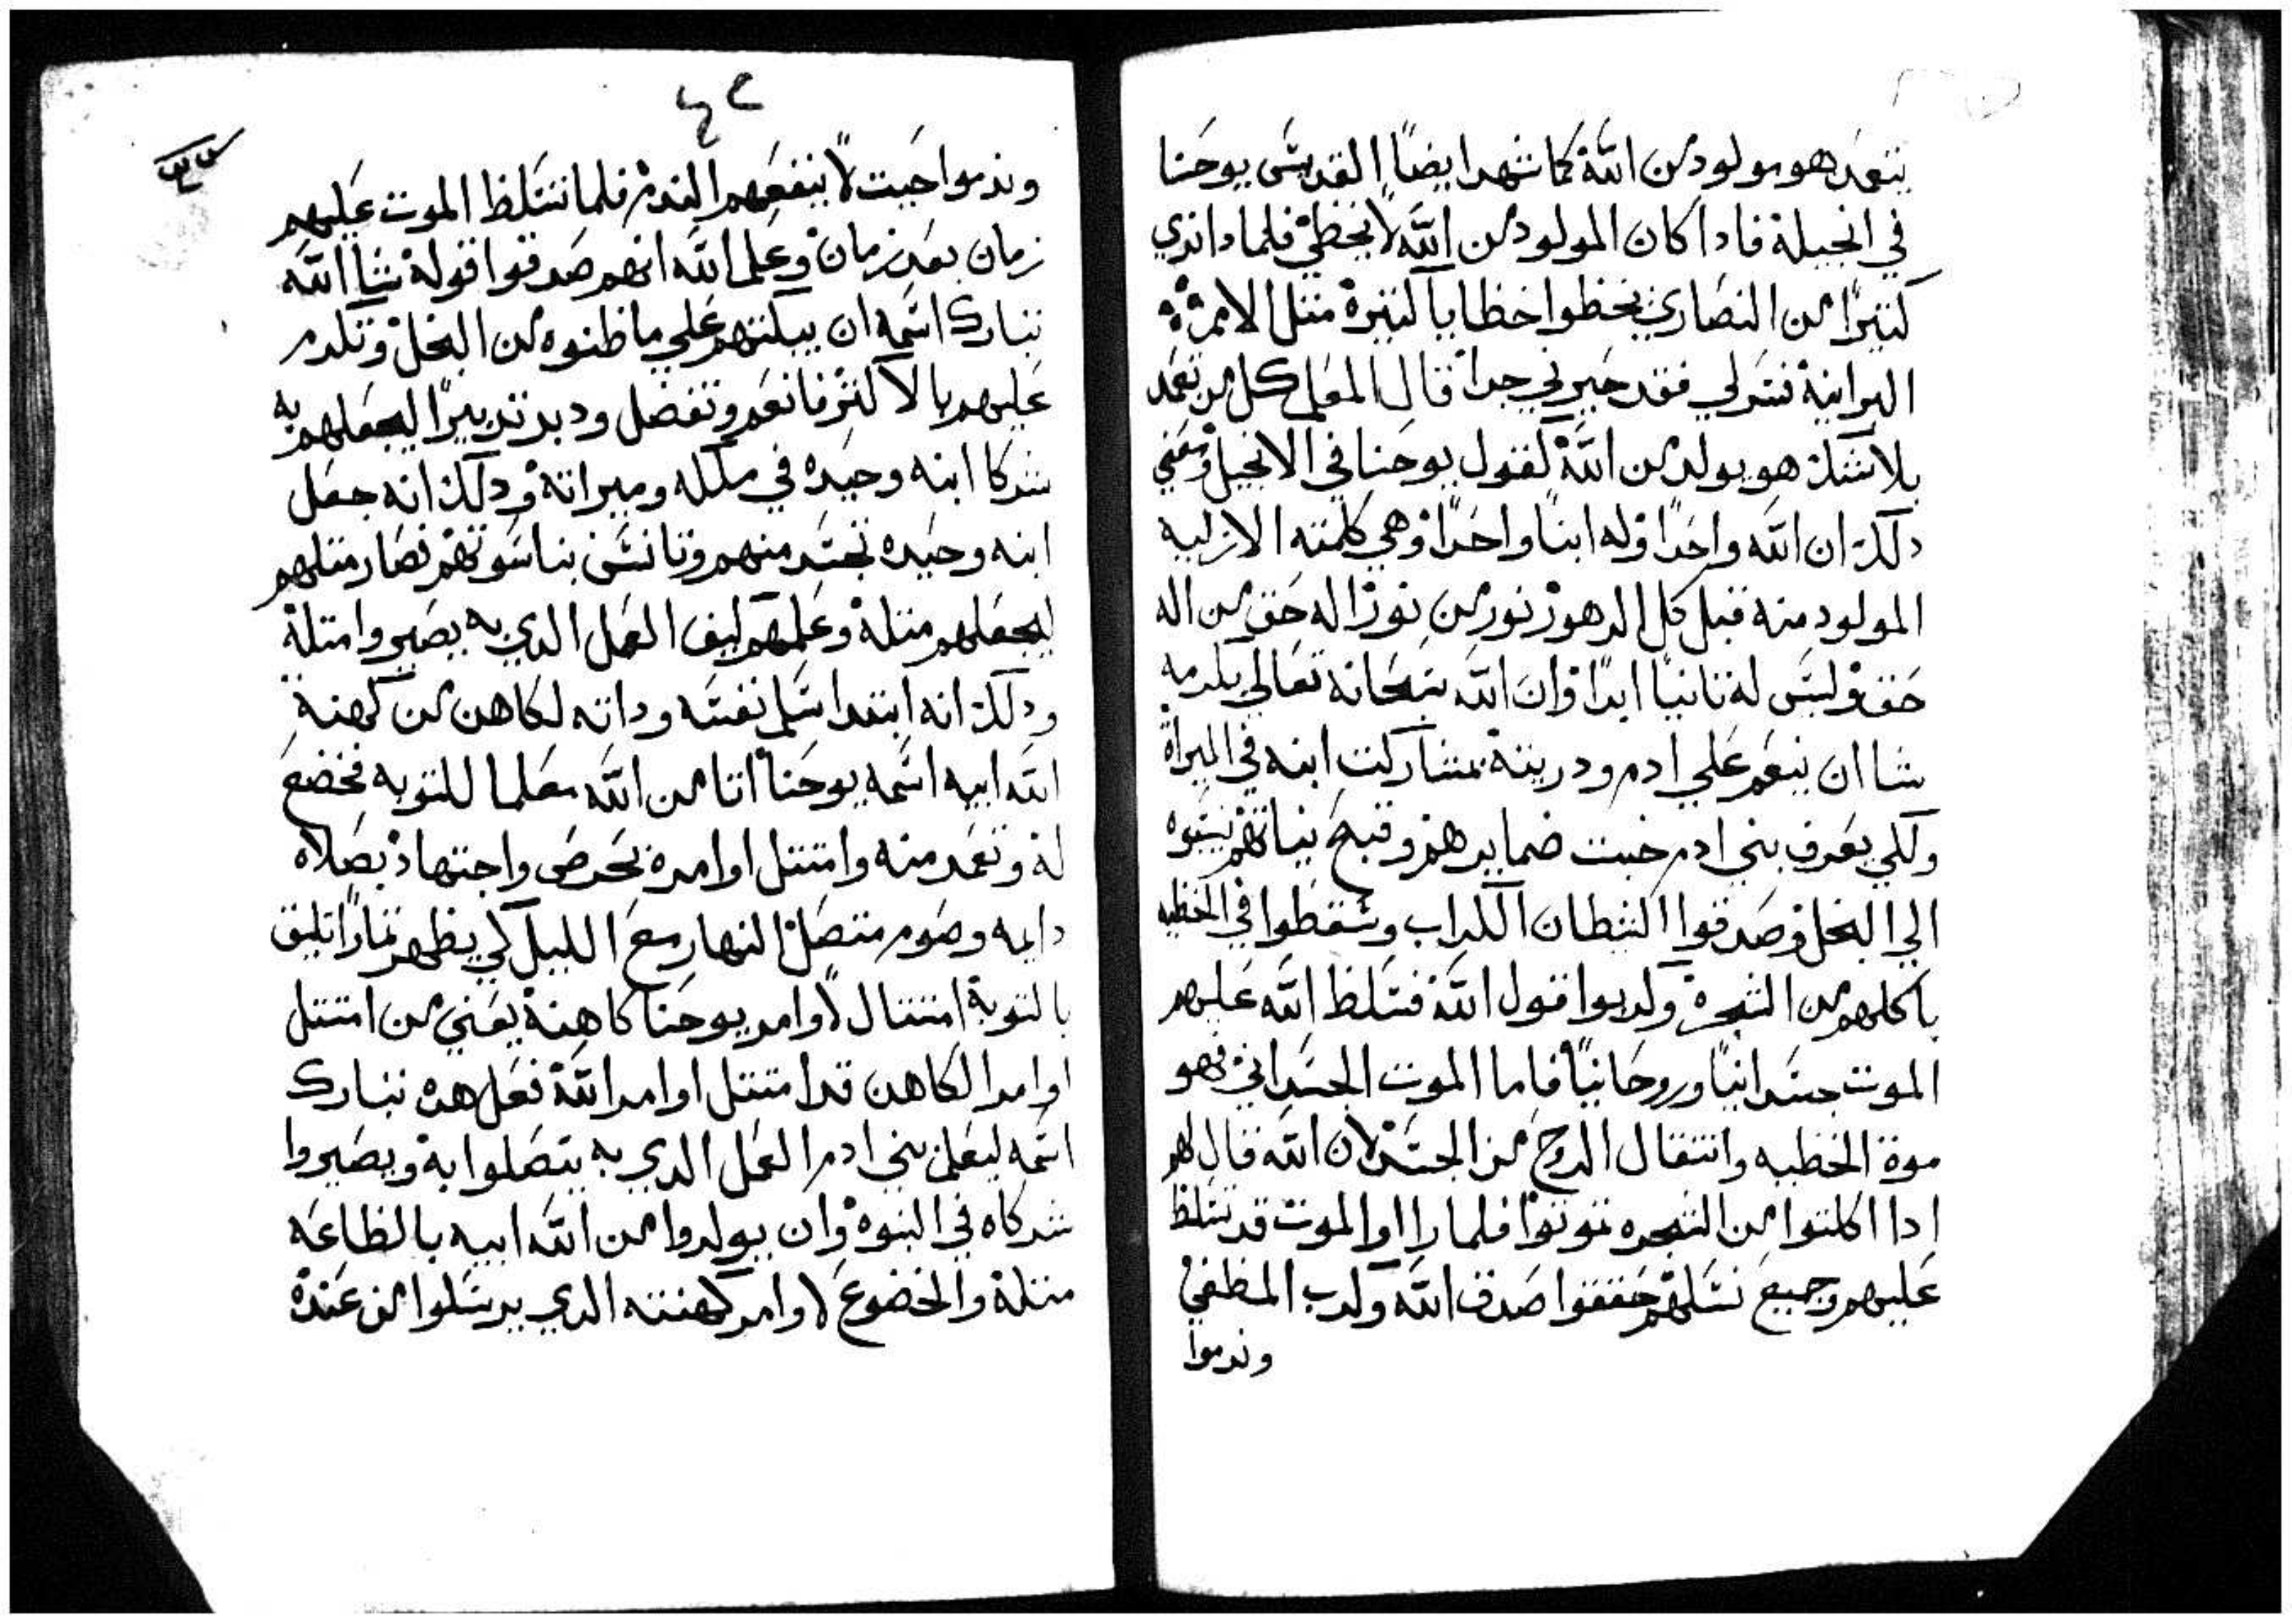 يتعمد هو مولود من الله كما شهد ايضا القديس يوحنا
في انجيله فادا كان المولود من الله لا يخطي فلمادا نري
كتيرا من النصاري يخطوا خطايا كتيرة متل الامم
البرانية فسر لي فقد حيرني جدا قال المعلم كل من تعمد
بلا شك هو يولد من الله كقول يوحنا في الانجيل ومعني
دلك ان الله واحدا وله ابنا واحدا وهي كلمته الازليه
المولود منه قبل كل الدهور نور من نور اله حق من اله
حق وليس له تانيا ابدا وان الله سبحانه تعالي بكرمه
شا ان ينعم علي ادم ودريته بمشاركت ابنه في الميراة
ولكي يعرف بني ادم خبت ضمايرهم وقبح نياتهم نسبوه
الي البخل وصدقوا الشطان الكداب وسقطوا في الخطيه
باكلهم من الشجره وكدبوا قول الله فسلط الله عليهم
الموت جسدانيا وروحانيا فاما الموت الجسداني فهو
موة الخطيه وانتقال الروح من الجسد لان الله قال لهم
ادا اكلتوا من الشجره تموتوا فلما راوا الموت قد تسلط
عليهم وجميع نسلهم حققوا صدق الله وكدب المطغي
وندموا
٤٢
وندموا حيت لا ينفعهم الندم فلما تسلط الموت عليهم
زمان بعد زمان وعلم الله انهم صدقوا قوله شا الله
تبارك اسمه ان يبكتهم علي ما ظنوه من البخل وتكرم
عليهم بالاكتر فانعم وتفضل ودبر تدبيرا ليجعلهم به
شركا ابنه وحيده في ملكه وميراته ودلك انه جعل
ابنه وحيده تجسد منهم وتانس بناسوتهم فصار متلهم
ليجعلهم متله وعلمهم كيف العمل الدي به يصيروا متله
ودلك انه ابتدا سلم نفسه وداته لكاهن من كهنة
الله ابيه اسمه يوحنا اتا من الله معلما للتوبه فخضع
له وتعمد منه وامتتل اوامره بحرص واجتهاد بصلاه
دايمه وصوم متصل النهار مع الليل كي يظهر تمارا تليق
بالتوبة امتتال لاوامر يوحنا كاهنه يعني من امتتل
اوامر الكاهن قد امتتل اوامر الله فعل هده تبارك
اسمه ليعلم بني ادم العمل الدي به يتصلوا به ويصيروا
شركاه في البنوة وان يولدوا من الله ابيه بالطاعه
متله والخضوع لاوامر كهنته الدي يرسلوا من عنده